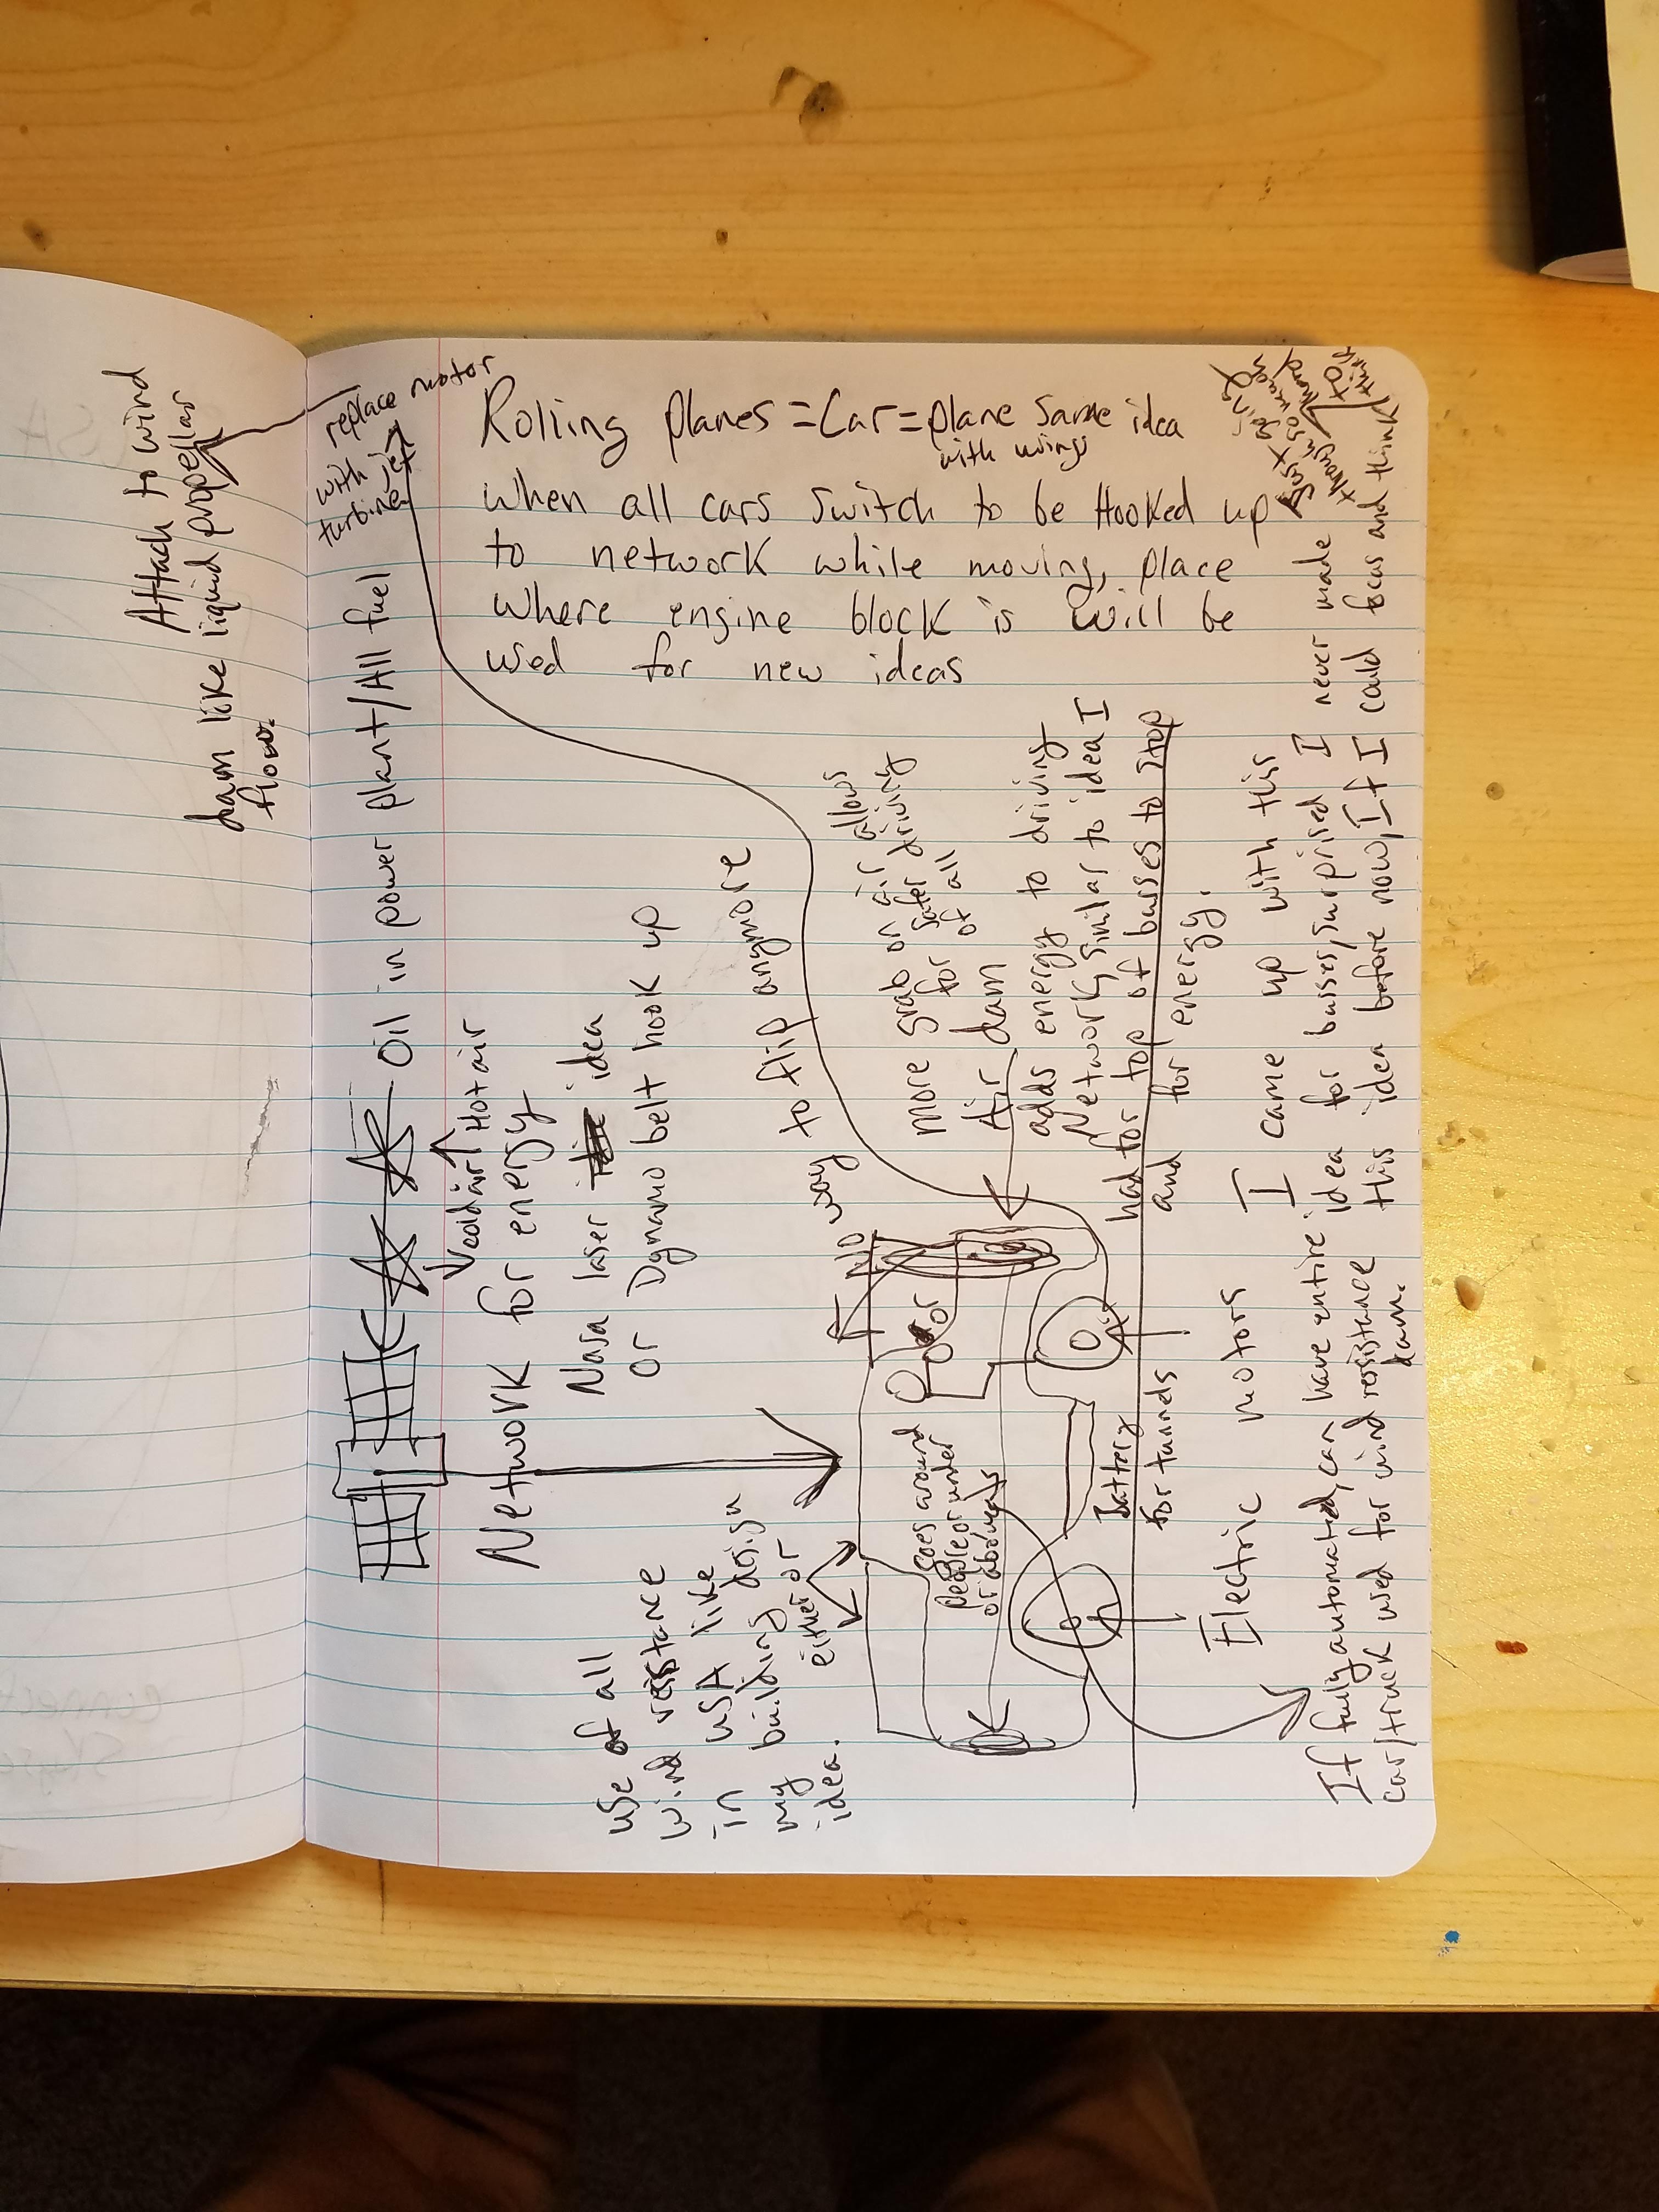 Attach to wind
liquid propellar
dam like
flow.
replace motor
with jet
turbine
Oil in power plant/All fuel
cold air Hot air
Network for energy
Nasa laser idea
or Dynamo belt hook up
Rolling planes = Car = plane same idea
with wings
when all cars switch to be Hooked up
to network while moving, place
where engine block is will be
used for new ideas
use of all
wind resistance
in USA like
my building design
either or
idea.
No way to flip anymore
more grab on air allows
for safer driving
of all
Air dam
adds energy to driving
Network, similar to idea I
had for top of busses to stop
and for energy.
Door
Goes around
people or under
or above
Air
battery
for tunnels
Electric motors
I came up with this
idea for busses, surprised I never made
this idea before now, If I could focus and think
Just
to
think
If fully automated, can have entire
car/truck used for wind resistance
dam.